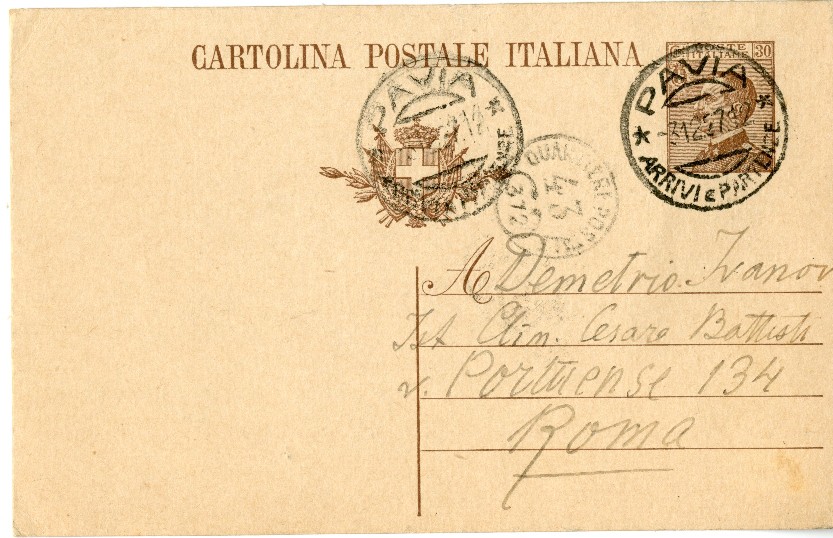 CARTOLINA POSTALE ITALIANA
POSTE ITALIANE 30
* PAVIA *
ARRIVI E PARTENZE
* PAVIA *
-3 12 27
ARRIVI E PARTENZE
43
312
A Demetrio Ivanov
Ist Clin. Cesare Battisti
v. Portuense 134
Roma